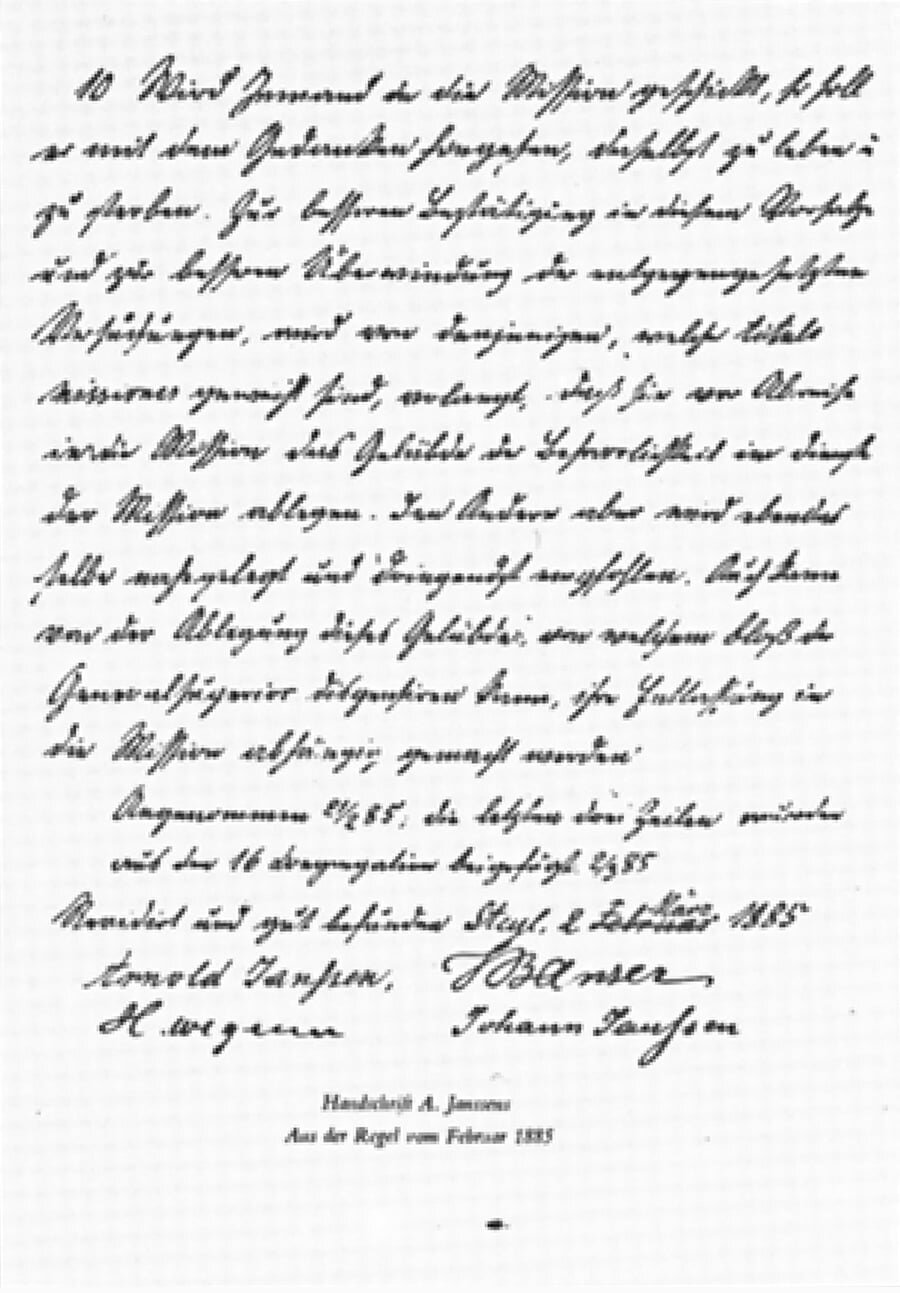 10 Wird Jemand in die Mission geschickt, so soll
er mit dem Gedanken hingehen, daselbst zu leben u
zu sterben. Zur besseren Bestätigung in diesem Vorsatze
und zur besseren Überwindung der entgegengesetzten
Versuchungen, wird von denjenigen, welche titulo
missionis geweiht sind, verlangt, daß sie vor Abreise
in die Mission das Gelübde der Beharrlichkeit im Dienste
der Mission ablegen. Den Andern aber wird ebendas
selbe nahegelegt und dringendst empfohlen. Auch kann
von der Ablegung dieses Gelübdes, von welchem bloß der
Generalsuperior dispensiren kann, ihre Zulassung in
die Mission abhängig gemacht werden.
Angenommen 85, die letzten drei Zeilen wurden
aus der 16 Congregation beigefügt 85
Revidirt und gut befunden Steyl. 2 Februar März 1885
Arnold Janssen.
H. Wegener Johann Janssen
Handschrift A. Janssens
Aus der Regel vom Februar 1885